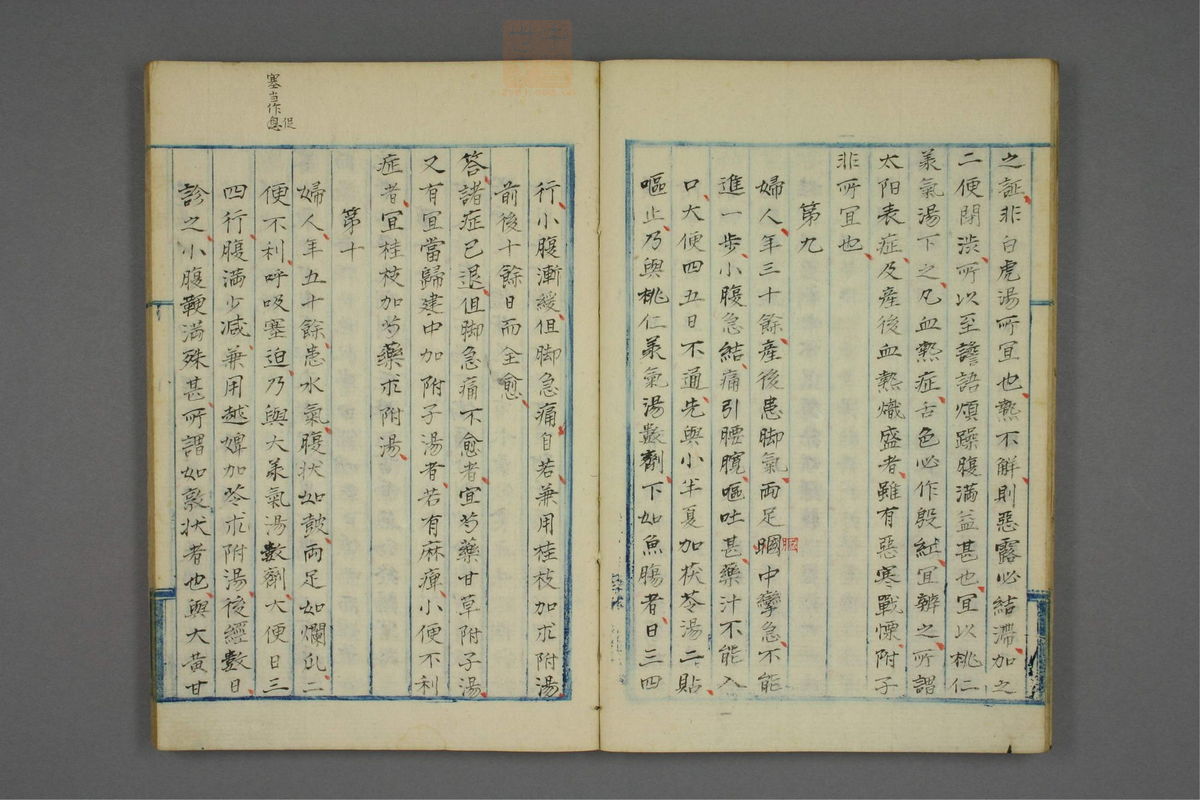 之証非白虎湯所宜也熱不解則惡露必結滯加之
二便閉渋所以至譫語煩躁腹滿益甚也宜以桃仁
承氣湯下之凡血熱症舌色必作殷紅宜辨之所謂
太阳表症及産後血熱熾盛者雖有惡寒戰慄附子
非所宜也
第九
婦人年三十餘産後患脚氣両足膕中攣急不能
進一步小腹急結痛引腰髖嘔吐甚藥汁不能入
口大便四五日不通先與小半夏加茯苓湯二貼
嘔止乃與桃仁承氣湯數劑下如魚腸者日三四
行小腹漸緩但脚急痛自若兼用桂枝加朮附湯
前後十餘日而全愈
答諸症已退但脚急痛不愈者宜芍藥甘草附子湯
又有宜當歸建中加附子湯者若有麻痺小便不利
症者宜桂枝加芍藥朮附湯
第十
塞当作促息
婦人年五十餘患水氣腹状如鼓両足如爛瓜二
便不利呼吸塞迫乃與大承氣湯數劑大便日三
四行腹満少减兼用越婢加苓朮附湯後經數日
診之小腹鞕満殊甚所謂如敦状者也與大黃甘